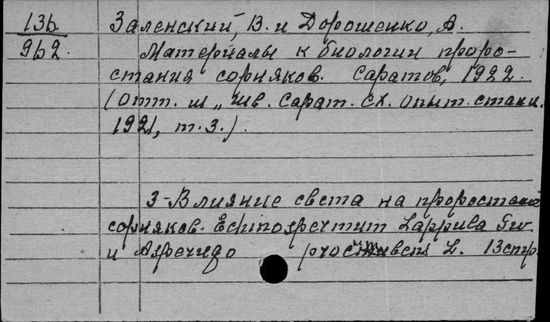 13б Заленский, В. и Дорошенко, А.
962. Материалы к биологии проро-
стания сорняков. Саратов, 1922.
(Отт. из „Жв. Сарат. с.х. опыт. станц.
1921, т. 3.).
3-Влияние света на проростание
сорняков. Echinospermum Lappula
и L. 13 стр.